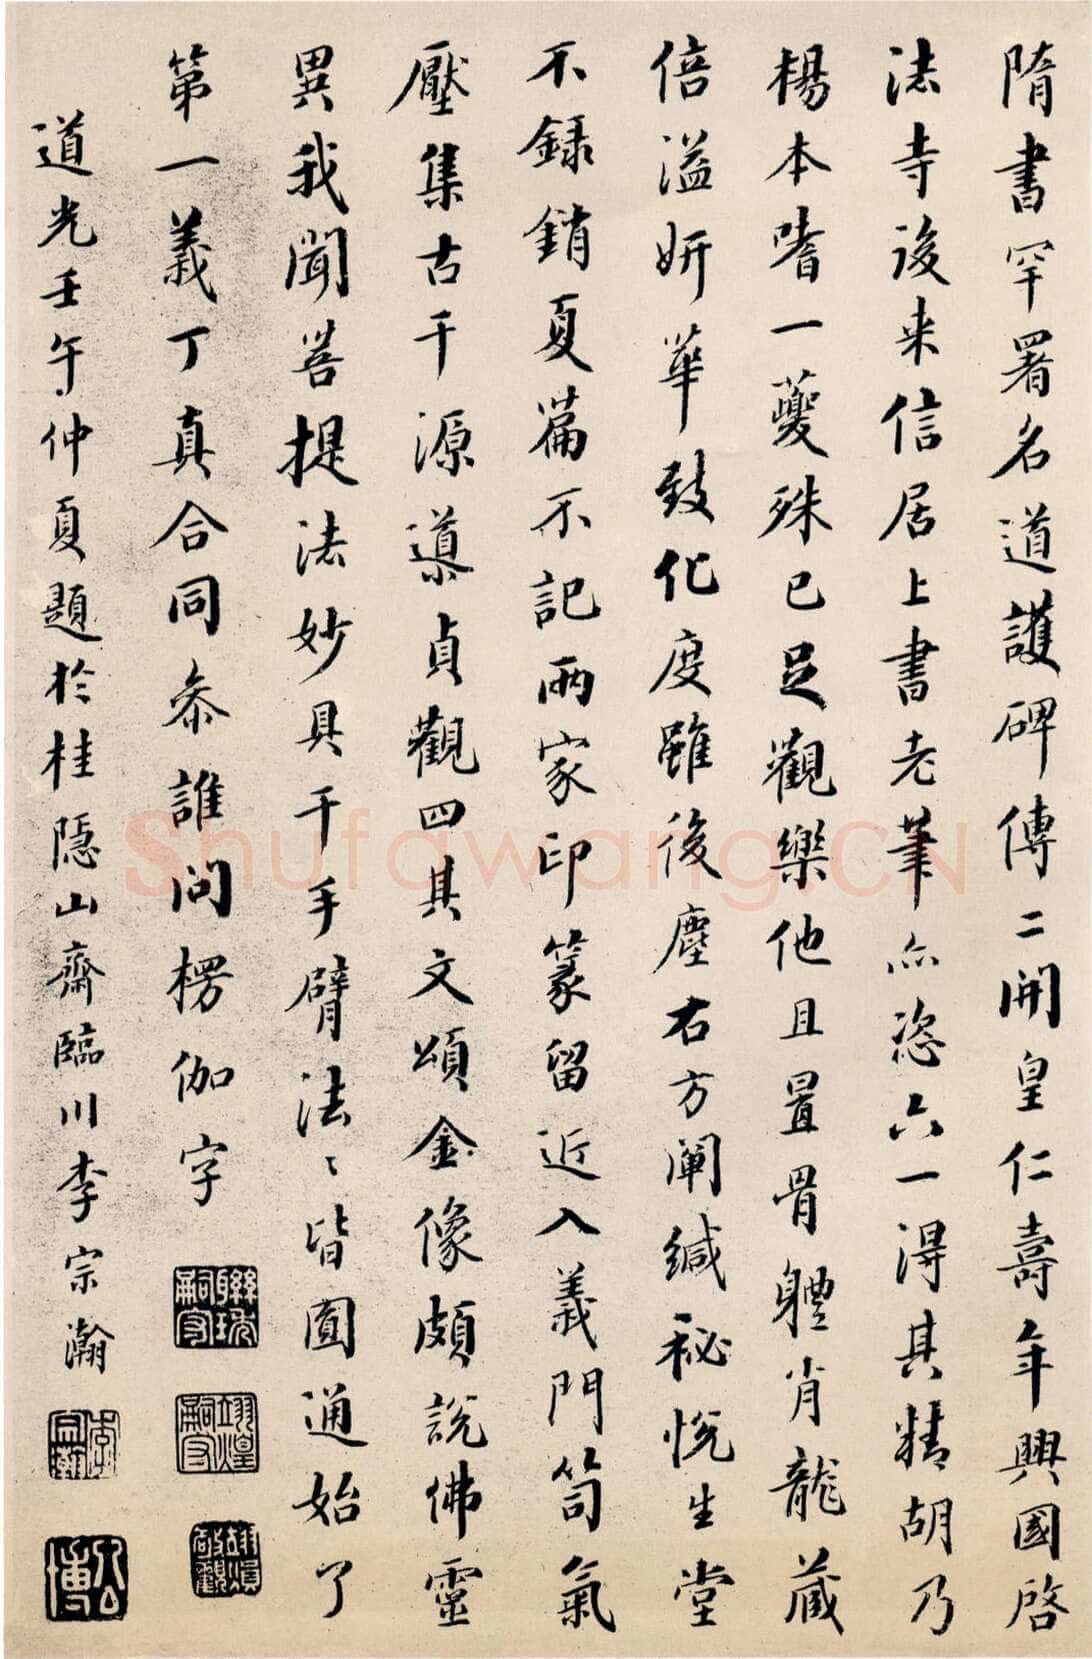 隋書罕署名道護碑傳二開皇仁壽年興國啓
法寺後来信居上書老筆亦恣六一得其精胡乃
楊本嗜一夔殊已足觀樂他且置骨體肖龍藏
倍溢妍華致化度雖後塵右方闡緘秘悅生堂
不録銷夏篇不記兩家印篆留近入義門笥氣
壓集古千源導貞觀四其文頌金像頗說佛靈
異我聞菩提法妙具千手臂法〻皆圓通始了
第一義丁真合同叅誰问楞伽字
道光壬午仲夏題於桂隱山齋臨川李宗瀚
李宗瀚
公博
Shufawang.CN